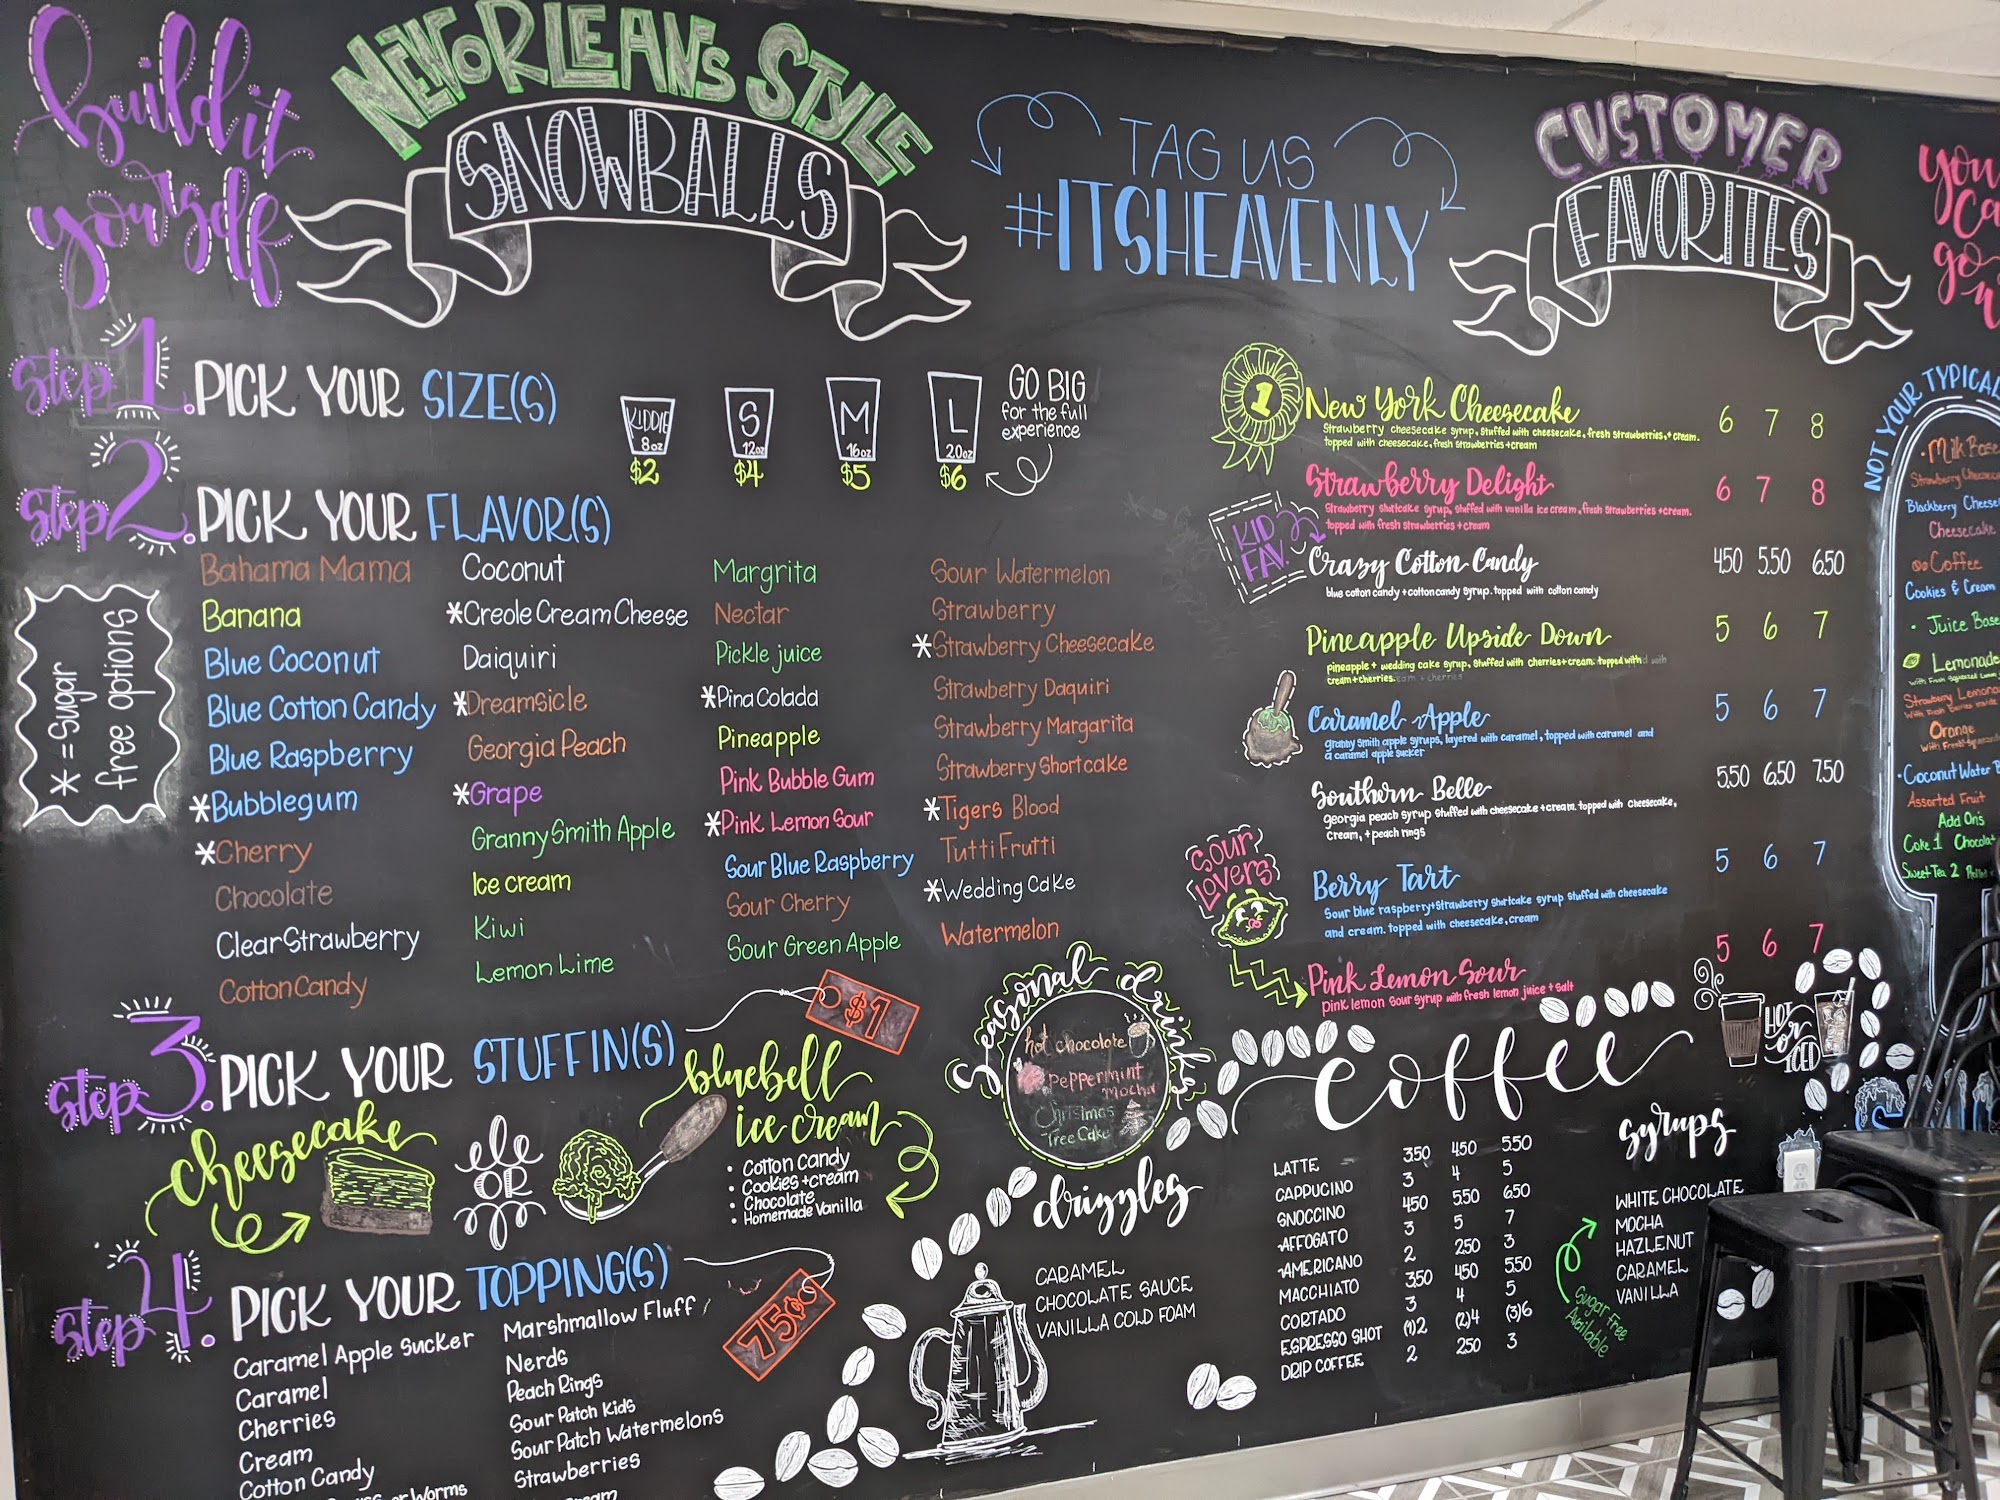 build it
yourself
NEW ORLEANS STYLE
SNOWBALLS
TAG US
#ITSHEAVENLY
CUSTOMER
FAVORITES
Step 1. PICK YOUR SIZE(S)
KIDDIE
8oz
$2
S
12oz
$4
M
16oz
$5
L
20oz
$6
GO BIG
for the full
experience
Step 2. PICK YOUR FLAVOR(S)
* = Sugar
free options
Bahama Mama
Banana
Blue Coconut
Blue Cotton Candy
Blue Raspberry
*Bubblegum
*Cherry
Chocolate
Clear Strawberry
Cotton Candy
Coconut
*Creole Cream Cheese
Daiquiri
*Dreamsicle
Georgia Peach
*Grape
Granny Smith Apple
Ice cream
Kiwi
Lemon Lime
Margrita
Nectar
Pickle juice
*Pina Colada
Pineapple
Pink Bubble Gum
*Pink Lemon Sour
Sour Blue Raspberry
Sour Cherry
Sour Green Apple
Sour Watermelon
Strawberry
*Strawberry Cheesecake
Strawberry Daquiri
Strawberry Margarita
Strawberry Shortcake
*Tigers Blood
Tutti Frutti
*Wedding Cake
Watermelon
Step 3. PICK YOUR STUFFIN(S)
$1
cheesecake
OR
bluebell
ice cream
• Cotton Candy
• Cookies + cream
• Chocolate
• Homemade Vanilla
Step 4. PICK YOUR TOPPING(S)
75¢
Caramel Apple Sucker
Caramel
Cherries
Cream
Cotton Candy
or Worms
Marshmallow Fluff
Nerds
Peach Rings
Sour Patch Kids
Sour Patch Watermelons
Strawberries
1
New York Cheesecake 6 7 8
Strawberry cheesecake syrup, stuffed with cheesecake, fresh strawberries, + cream.
topped with cheesecake, fresh strawberries + cream
Strawberry Delight 6 7 8
Strawberry shortcake syrup, stuffed with vanilla ice cream, fresh strawberries + cream.
topped with fresh strawberries + cream
KID
FAV.
Crazy Cotton Candy 4.50 5.50 6.50
blue cotton candy + cotton candy syrup. topped with cotton candy
Pineapple Upside Down 5 6 7
pineapple + wedding cake syrup, stuffed with cherries + cream. topped with
cream + cherries.
Caramel Apple 5 6 7
granny smith apple syrups, layered with caramel, topped with caramel and
a caramel apple sucker
Southern Belle 5.50 6.50 7.50
georgia peach syrup stuffed with cheesecake + cream. topped with cheesecake,
cream, + peach rings
Sour
Lovers
Berry Tart 5 6 7
Sour blue raspberry + strawberry shortcake syrup stuffed with cheesecake
and cream. topped with cheesecake, cream
Pink Lemon Sour 5 6 7
pink lemon sour syrup with fresh lemon juice + salt
Seasonal drinks
hot chocolate
peppermint
mocha
Christmas
Tree Cake
drizzles
CARAMEL
CHOCOLATE SAUCE
VANILLA COLD FOAM
coffee
HOT
or
ICED
LATTE 3.50 4.50 5.50
CAPPUCINO 3 4 5
GNOCCINO 4.50 5.50 6.50
AFFOGATO 3 5 7
AMERICANO 2 2.50 3
MACCHIATO 3.50 4.50 5.50
CORTADO 3 4 5
ESPRESSO SHOT (1)2 (2)4 (3)6
DRIP COFFEE 2 2.50 3
syrups
WHITE CHOCOLATE
MOCHA
HAZLENUT
CARAMEL
VANILLA
Sugar Free
Available
NOT YOUR TYPICAL
• Milk Base
Blackberry
Cheesecake
Coffee
Cookies & Cream
• Juice Base
Lemonade
Orange
• Coconut Water
Assorted Fruit
Add Ons
Coke 1
Sweet Tea 2